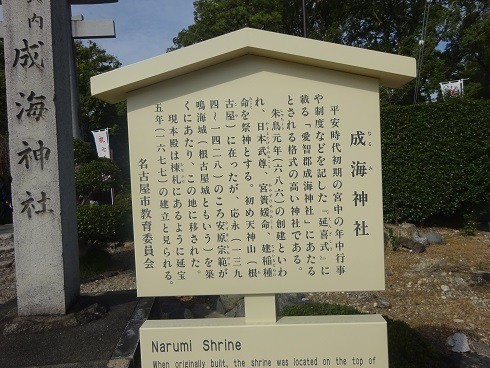 内成海神社
成海神社
なる み
平安時代初期の宮中の年中行事
や制度などを記した『延喜式』に
載る「愛智郡成海神社」にあたる
とされる格式の高い神社である。
朱鳥元年（六八六）の創建といわ
れ、日本武尊、宮簀媛命、建稲種
命を祭神とする。初め天神山（根
古屋）に在ったが、応永（一三九
四〜一四二八）のころ安原宗範が
鳴海城（根古屋城ともいう）を築
くにあたり、この地に移された。
現本殿は棟札にあるように延宝
五年（一六七七）の建立と見られる。
名古屋市教育委員会
Narumi Shrine
When originally built, the shrine was located on the top of